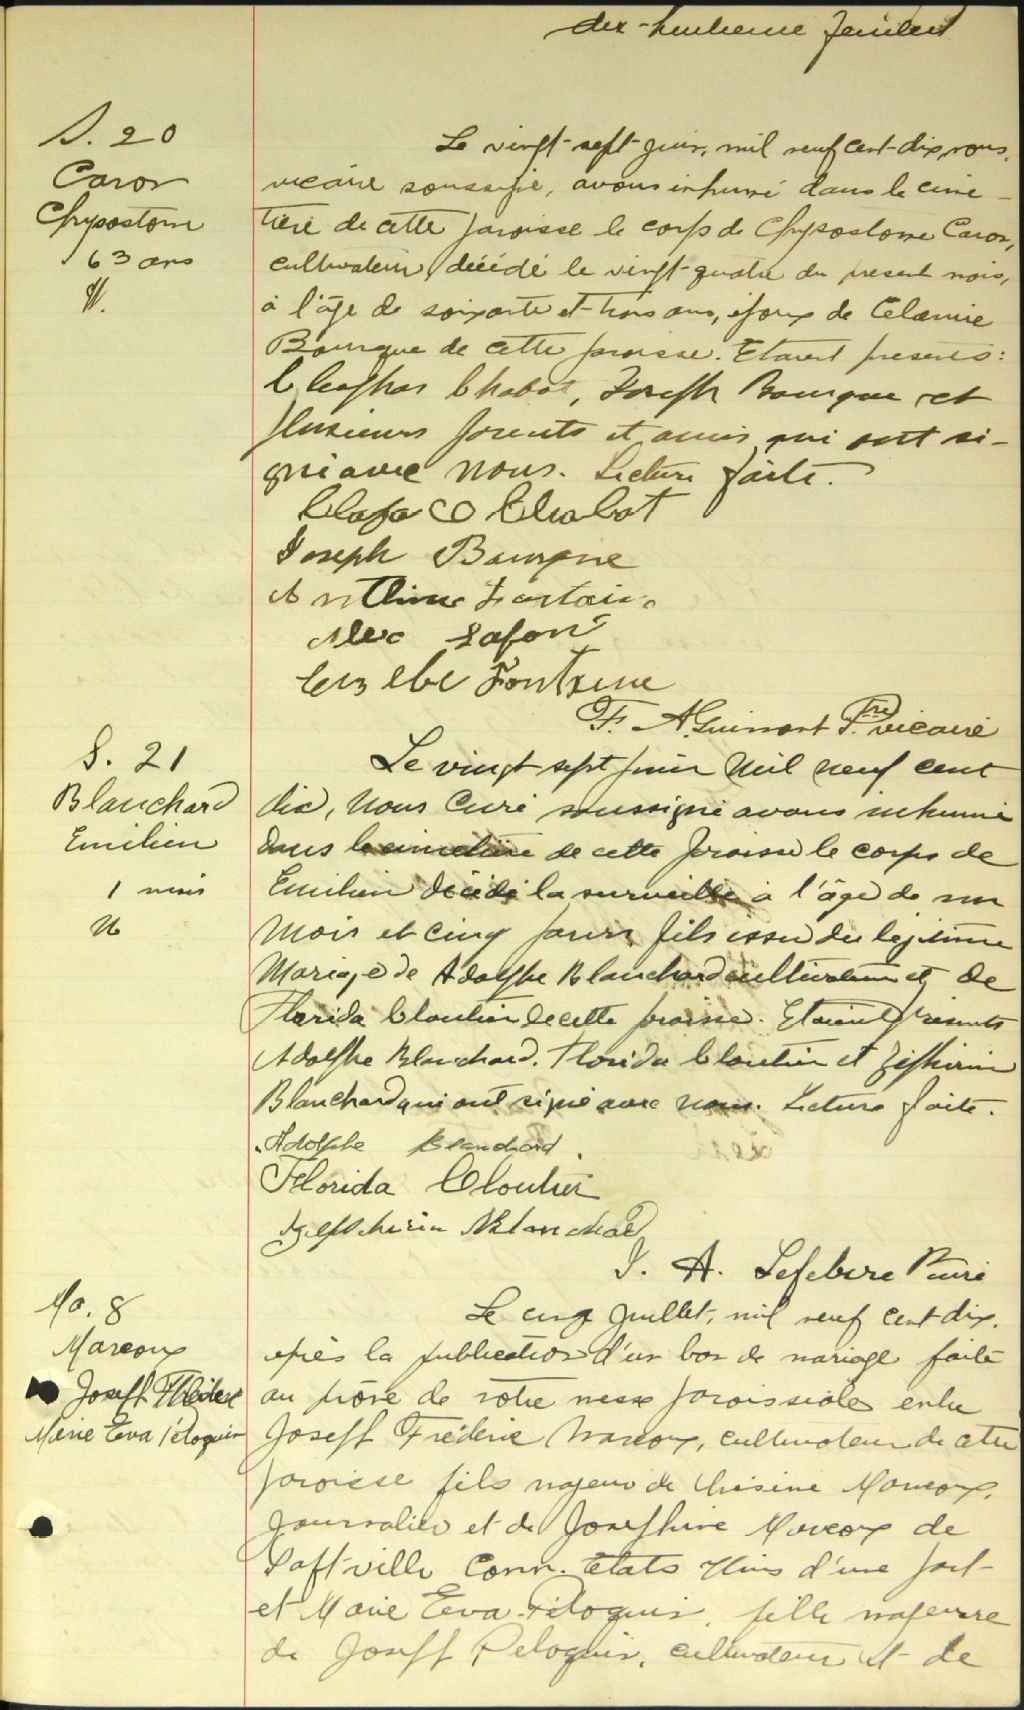 dix-huitieme feuillet
S. 20
Caron
Chrysostome
63 ans
Le vingt-sept juin, mil neuf cent-dix, nous,
vicaire soussigné, avons inhumé dans le cime-
tière de cette paroisse le corps de Chrysostome Caron,
cultivateur, décédé le vingt-quatre du present mois,
à l'âge de soixante et-trois ans, époux de
Bourque de cette paroisse. Etaient presents:
Cleophas Chabot, Joseph Bourque et
plusieurs parents et amis qui ont si-
gné avec nous. Lecture faite.
Chabot
Joseph Bourque
Fontaine
Alec Lafond
Fontaine
F. A. Guimont Ptre vicaire
S. 21
Blanchard
Emilien
1 mois
Le vingt sept juin mil neuf cent
dix, nous curé soussigné avons inhumé
dans le cimetière de cette paroisse le corps de
Emilien décédé la surveille à l'âge de un
mois et cinq jours fils issu du légitime
mariage de Adolphe Blanchard cultivateur et de
Florida Cloutier de cette paroisse. Etaient présents
Adolphe Blanchard. Florida Cloutier et Zéphirin
Blanchard qui ont signé avec nous. Lecture faite.
Adolphe Blanchard.
Florida Cloutier
Zephirin Blanchard
J. A. Lefebvre Ptre curé
Ma. 8
Marcoux
Joseph Fréderic
Marie Eva Péloquin
Le cinq juillet, mil neuf cent dix.
après la publication d'un ban de mariage faite
au prône de notre messe paroissiale entre
Joseph Fréderic Marcoux, cultivateur de cette
paroisse fils majeur de Onésime Marcoux,
journalier et de Josephine Marcoux de
Taftville Conn. Etats Unis d'une part-
et Marie Eva Péloquin, fille majeure
de Joseph Peloquin, cultivateur et de